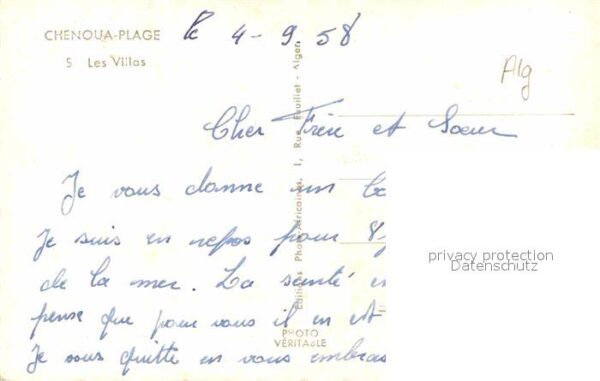 CHENOUA-PLAGE
5 Les Villas
le 4-9.58
Alg
Cher Frère et Soeur
Je vous donne un
Je suis en repos pour 8
de la mer. La santé
pense que pour vous il en est
Je vous quitte en vous embras
Editions Photo-Africaines, 1, Rue Feuillet - Alger
PHOTO
VÉRITABLE
privacy protection
Datenschutz